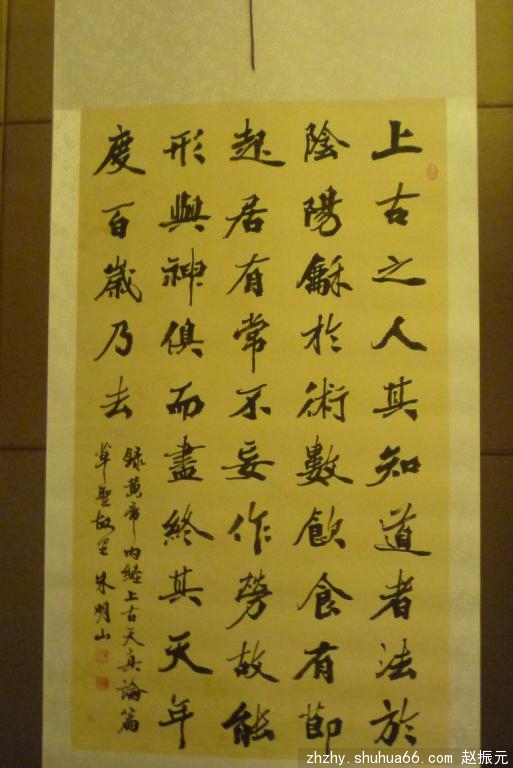 上古之人其知道者法於
陰陽龢於術數飲食有節
起居有常不妄作勞故能
形與神俱而盡終其天年
度百歲乃去
錄黃帝內經上古天真論篇
草聖故里朱明山
zhzhy.shuhua66.com 赵振元